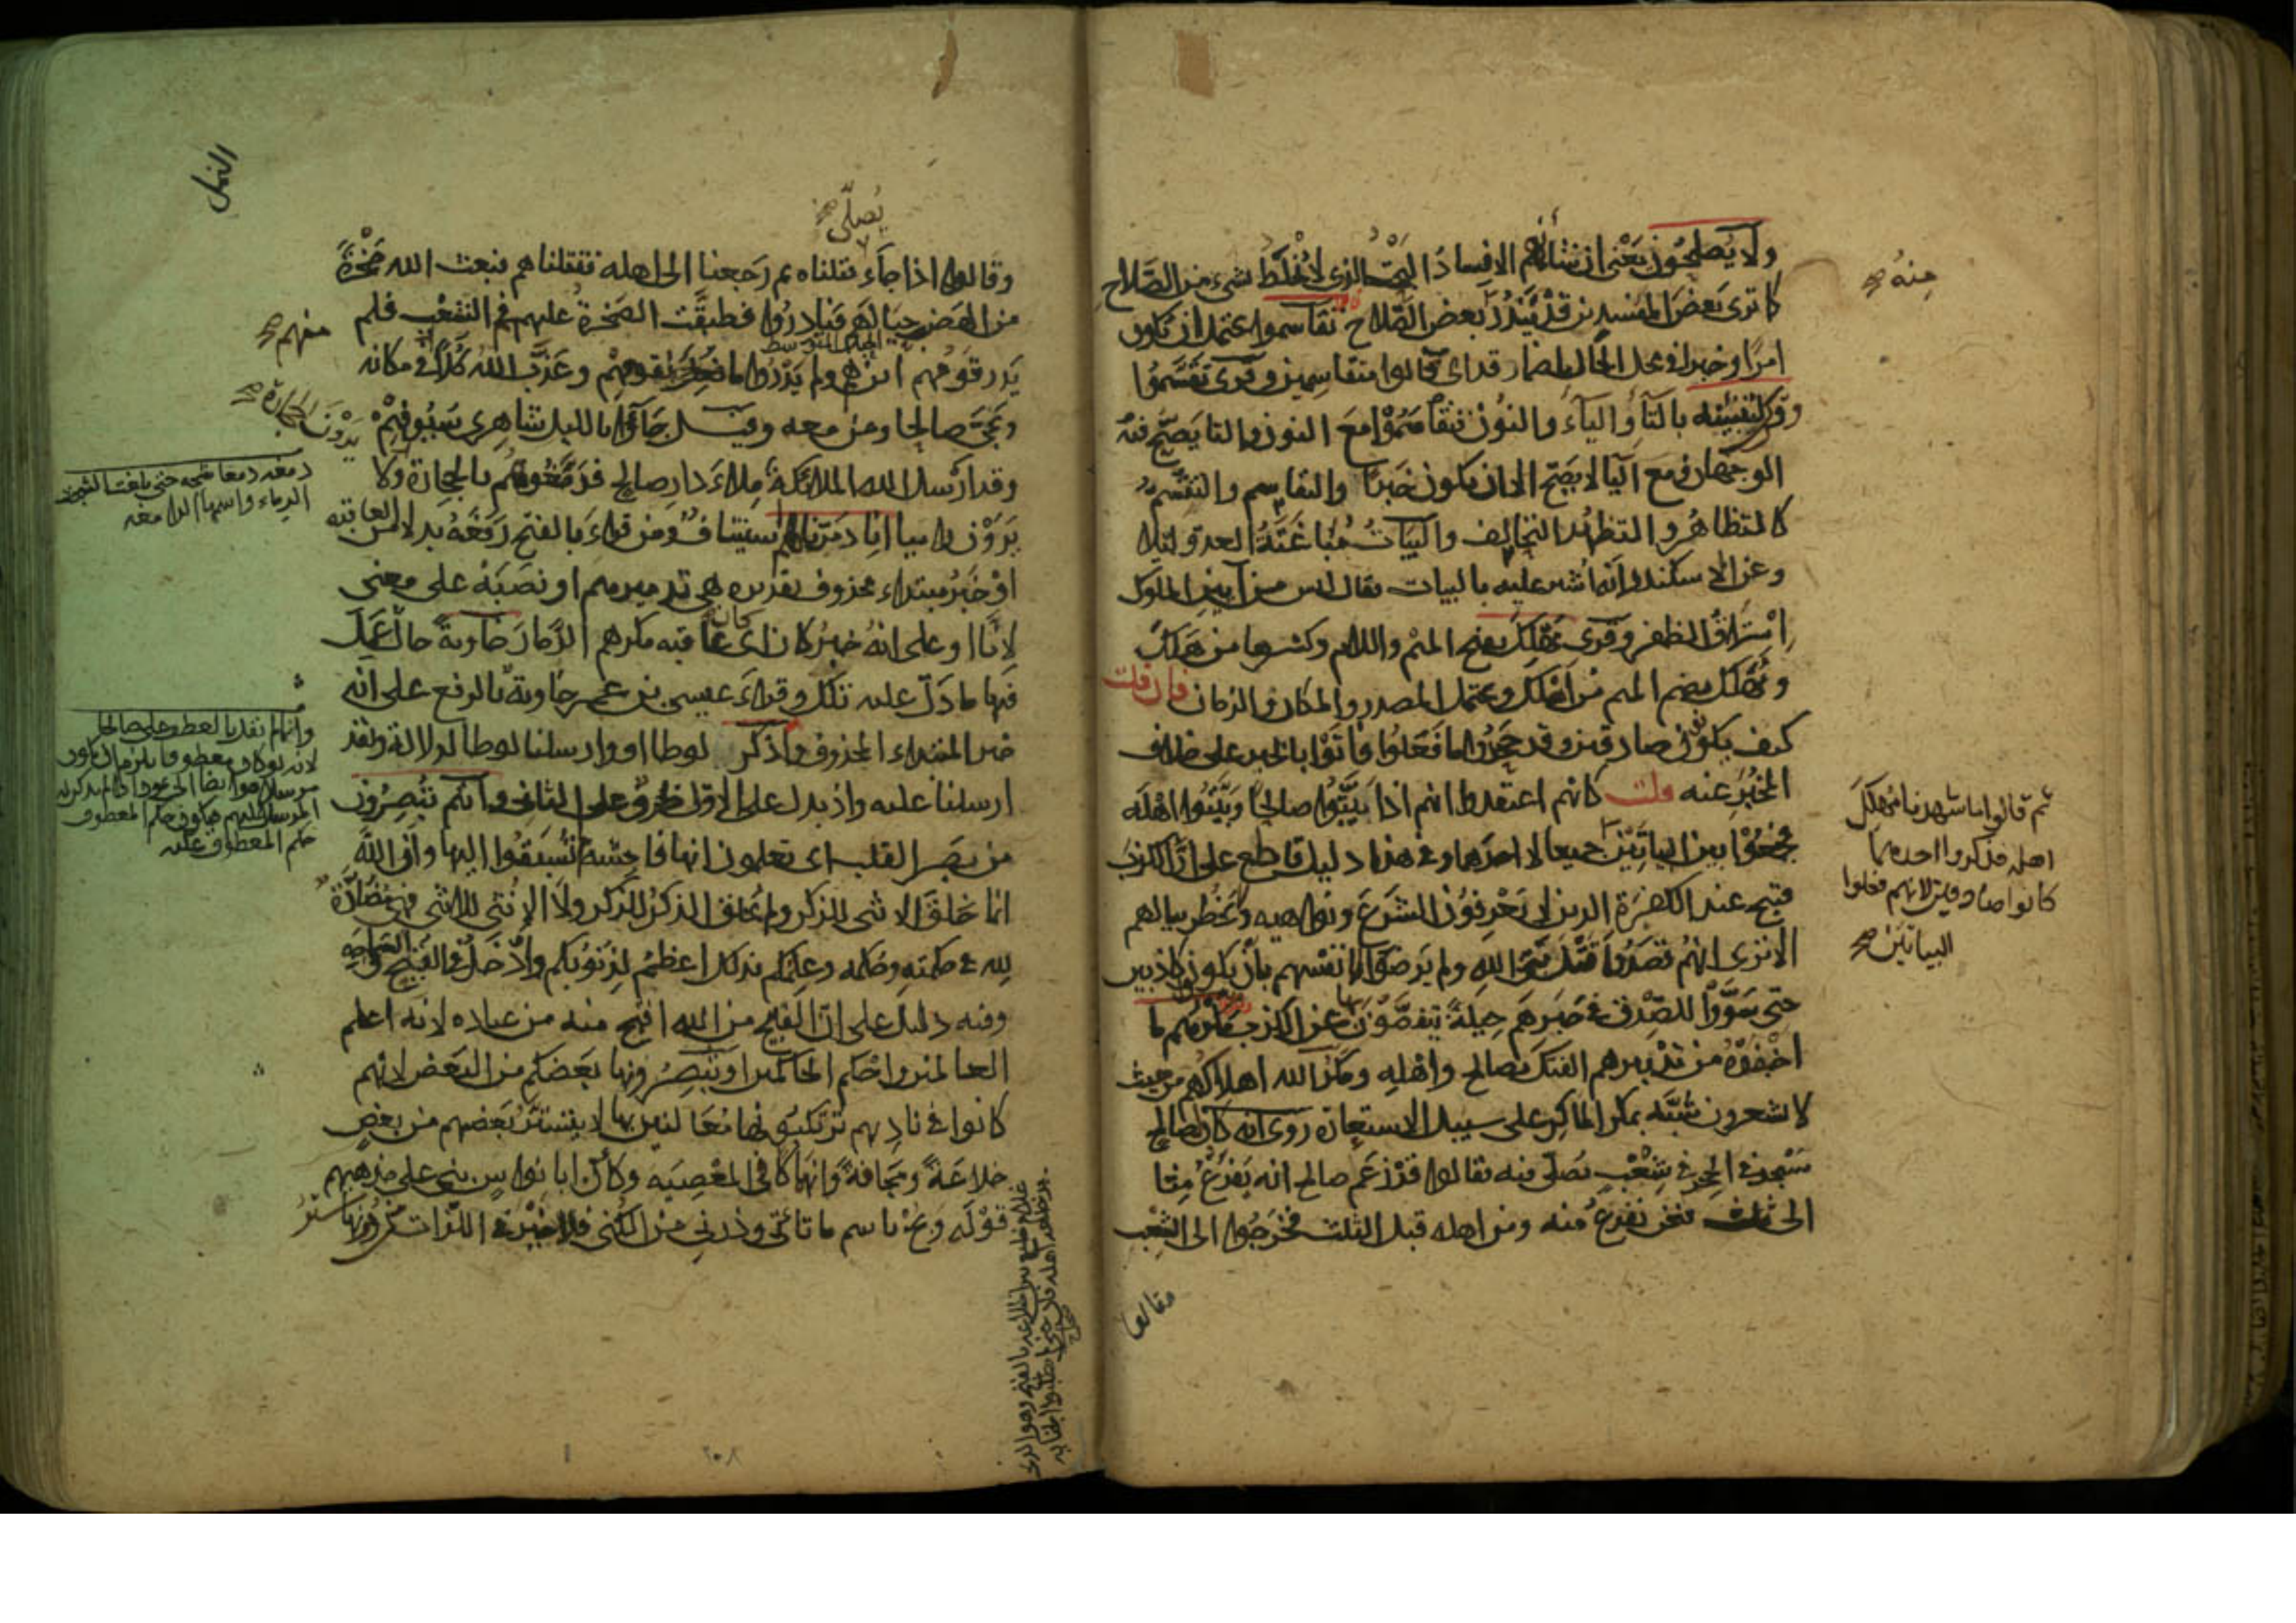 ولا يُصلحون يَعْني ان شأنهم الافسادُ البَحْتُ الذي لا يُخْلَطُ بشيء من الصَّلاح
كما ترى بَعْضَ المفسدين قد يَنْدُرُ بعض الصَّلاح تقاسموا يحتمل ان يكون
امرًا وخبرا في محل الحال باضمار قد اي قالوا متقاسمين وقرئ تَقَسَّموُا
وقرئ لتبيتنه بالتَّاءِ والياءِ والنوُن فتقاسَمُوْا مَعَ النون والتا يَصحّ فيه
الوجهان ومع اليا لا يَصِحّ الا ان يكون خَبَرًا والتقاسم والتقسّم
كالتظاهُر والتظهّر التحالف والبَيَاتُ مُبَاغَتَةُ العدوّ ليلا
وعن الاسكندر انه اُشير عليه بالبيات فقال ليس من آيين الملوك
اسْتِرَاقُ الظفر وقرئ مَهْلَك بفتح الميم واللام وكسرها من هَلَكَ
ومُهْلَك بضم الميم من اهْلك ويحتمل المصدر والمكان والزمان فان قلت
كيف يكونون صادقين وقد جَحَدُوا ما فَعَلُوا فاَتَوْا بالخبر على خلاف
المخْبَرِ عنه قلت كانهم اعتقدوا انهم اذا بَيَّتُوا صالحًا وَبَيَّتُوا اهْلَه
فجمَعُوْا بين البياتَيْن جميعا لا احدَهما وفي هذا دليل قاطع على ان الكذبَ
قبيح عند الكفرَة الذين لا يَعْرِفوُن الشرَعَ ونواهيه ولا يَخْطُر ببالهم
الا ترى انهُم قصَدُوا قَتْلَ نبيّ الله ولم يَرضَوْا لانفُسِهم بأن يكونوا كاذبين
حتى سَوَّوْا للصّدق في خبَرهم حِيلةً يتفصَّوْنَ بها عن الكذب مكرهم ما
اخْفَوْهُ من تدْبيرهم الفتك بصالح واهْلِه ومكرُ الله اهلاكُهم من حيث
لا يشعرون شبّهَ بمكر الماكر على سبيل الاستعارة روى انه كان لصالح
مَسْجد في الحِجر في شِعْبٍ يُصَلّي فيه فقالوا قدْ زعَم صالح انه يَفْرُغ مِنا
الى ثلث فنحن نفرُغُ منه ومن اهله قبل الثلث فخرَجُوا الى الشِعْب
وقالوا
مِنهُ صح
ثم قالوا ما شهدنا مَهْلِكَ
اهله فذكروا احدهما
كانوا صادقين لانهم فعلوا
البياتَيْن صح
النمل
يُصلّي صح
وقالوا اذا جآء قتلناه ثم رَجعنا الى اهله فقتلناهم فبعث الله صَخْرَةً
من الهَضْب حِيَالَهم فبادرُوا فطبقَت الصَخرةُ عليهم فم الشعْب فلم
يَدر قَومُهم اين هم ولم يَدْرُوا ما فُعِلَ بقومهم وعَذَّبَ اللهُ كُلًّا في مكانه
ونَجّى صالحا ومن معه وقيل جآؤا بالليل شاهِري سَيُوفِهِمْ
وقد ارْسل الله الملائكة مِلاءَ دار صالح فدَمَغُوهُم بالحجارة ولا
يَرَوْن راميا انا دمرّناهم استيناف ومن قراءَ بالفتح رَفَعَهُ بدلا من العاقبه
اوْ خبَرُ مبتداء محذوف تقديره هي تدميرهم او نصَبَهُ على معنى
لانّا او على انهُ خبرُ كان اى كان عاقبه مكرهم الدّمار خآويةً حال عَمِلَ
فيها ما دَلّ عليه تلك وقرأءَ عيسى بن عمر خاويةٌ بالرفع على انه
خبر المبتداء المحذوف واذكر لوطا او وارسلنا لوطا لدلالة ولقد
ارسلنا عليه واذ بدل على الاول ظرفٌ على الثاني وانتم تُبْصِرُون
من بصَر القلب اى تعلمون انها فاحِشة لم تُسبَقُوا اليها وان اللهَ
انما خلقَ الانثى للذكر ولم يخلق الذكرُ للذكر ولا الانُثى للانثى فهي مُضَادَّةٌ
لِله في حكمته وحُكمه وعِلمُكم بذلك اعظمُ لِذنوُبكم وادْخَلُ في القبْح والسماجَه
وفيه دليل على انّ القبيح من الله اقبح منه من عباده لانه اعلم
العالمين واحْكم الحاكمين او تبْصِرُونها بَعضكم من البَعْض لانهم
كانوا في نادِيهم يَرْتكبوُنها مُعَالنين بها لا يتستّرُ بَعضهم من بعضٍ
خلاعَةً ومَجَافَةً وانهِمَاكا في المعْصِيَه وكأنّ ابا نواس بنى على مذهبهم
قَوْلَه وبُحْ باسم ما تأتي وذرني من الكُنى فلا خَيْرَ في اللّذات من دُونها ستْرُ
منهم صح
يَرَوْنَ الحجارة صح
الجبل المتوسط
دمغه دمغا شجه حتى بلغت الشجة
الدماغ واسمها الدامغه
وانما لم نقدر بالعطف على صالحا
حكم المعطوف عليه
٢٠٨